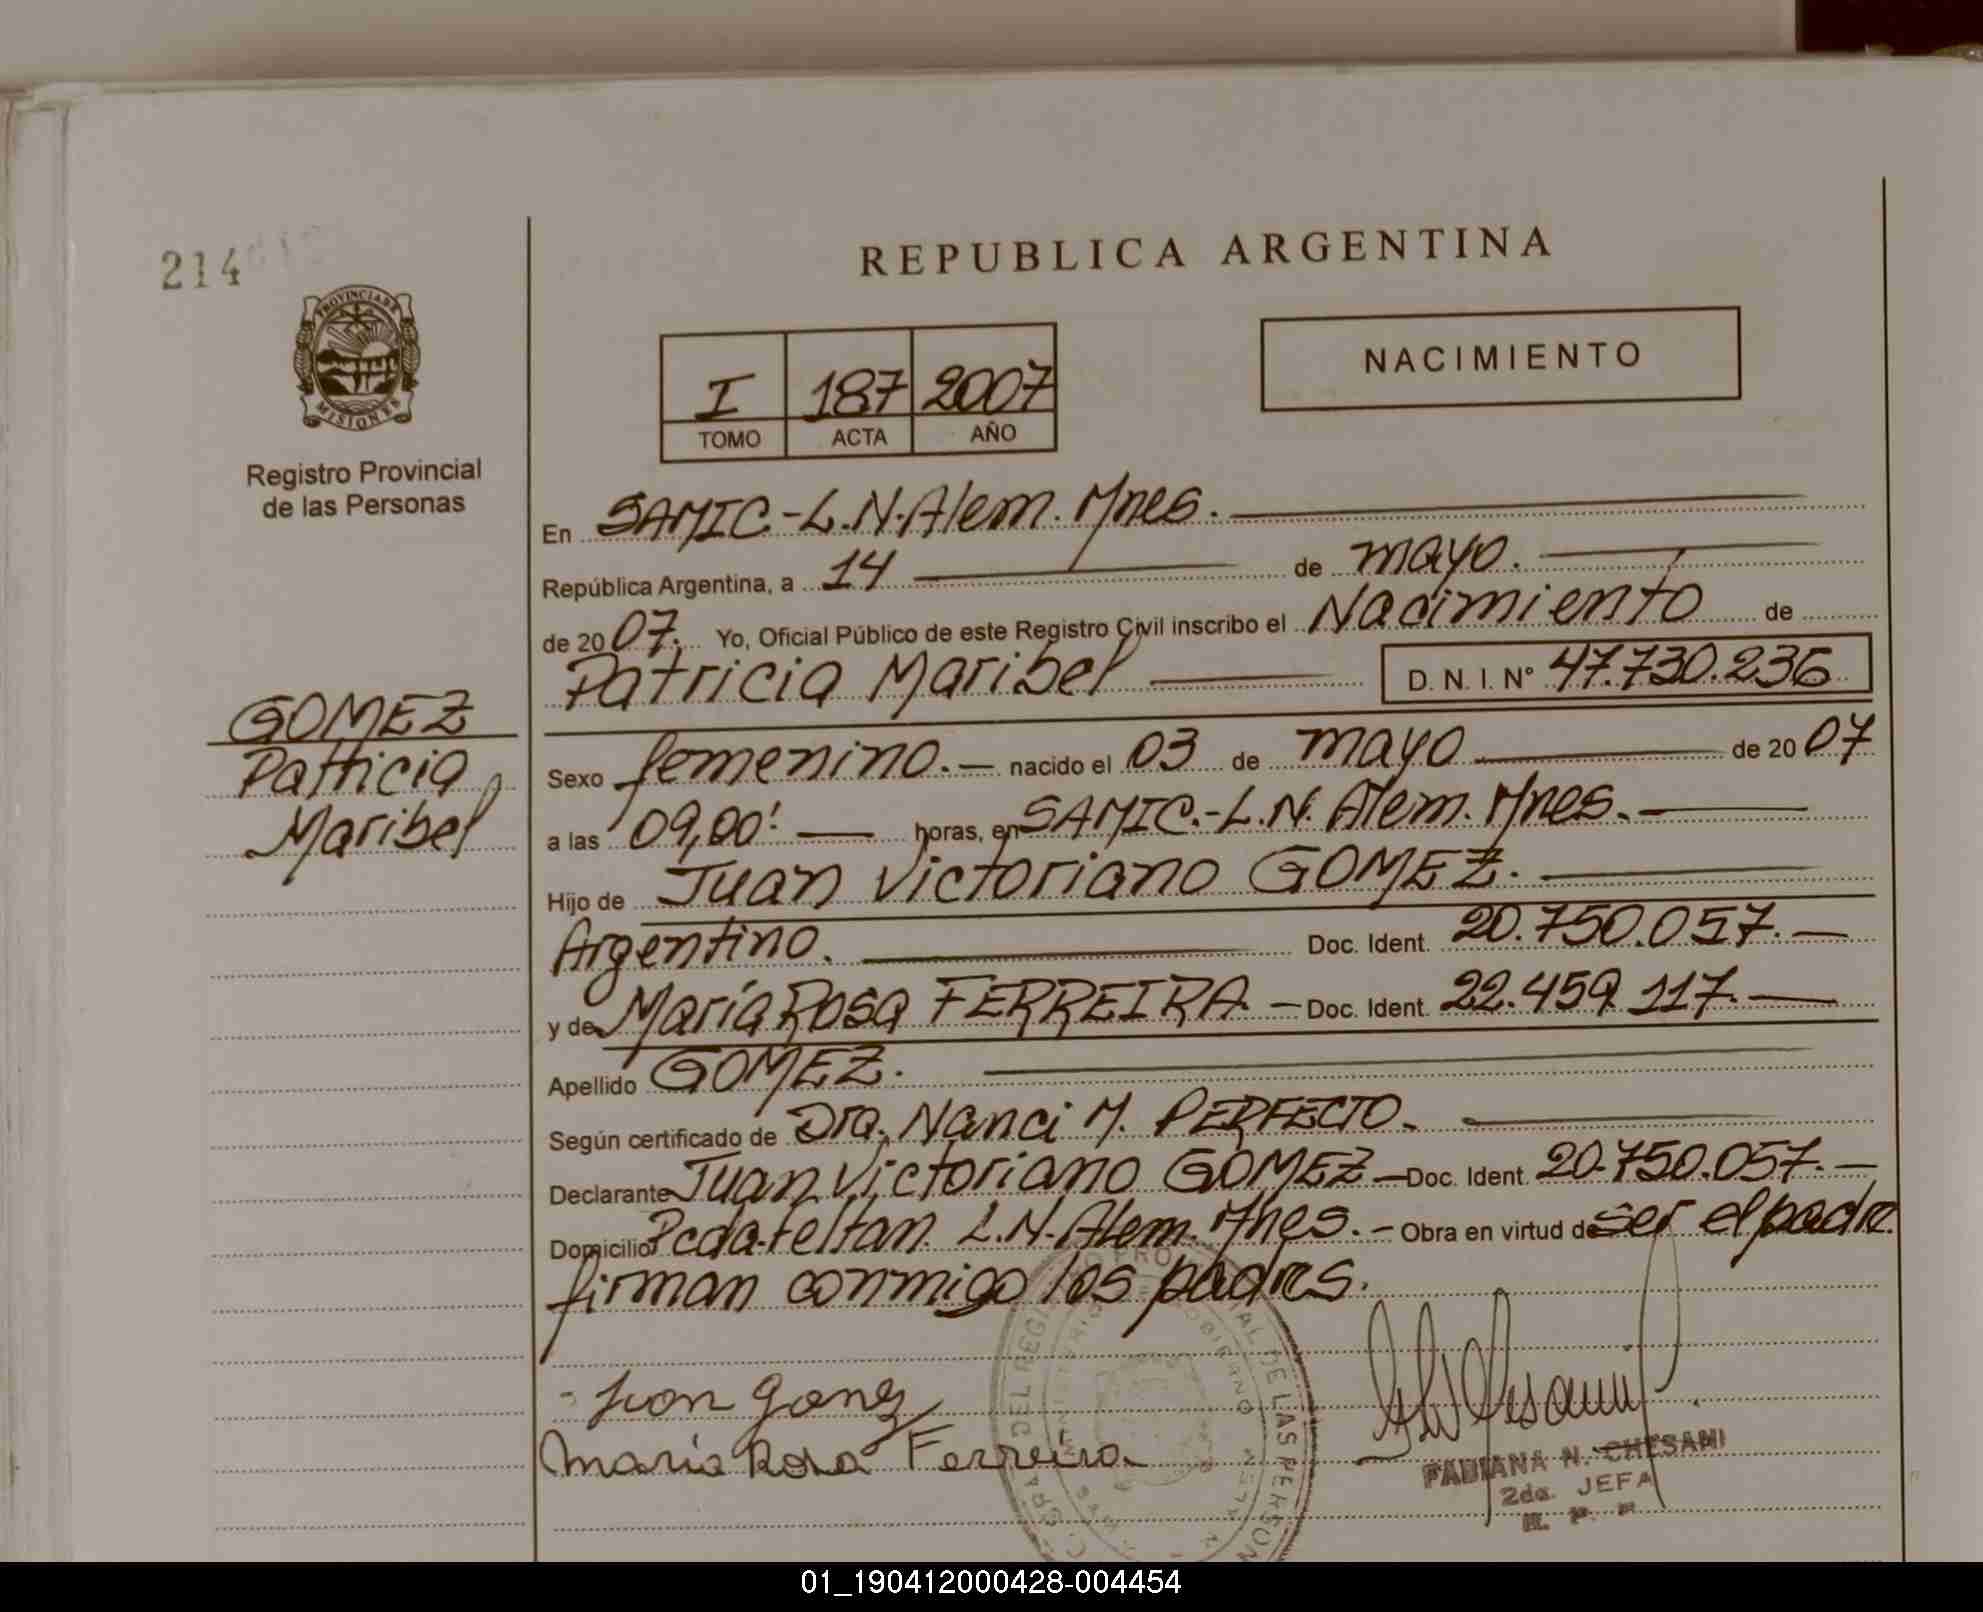 REPUBLICA ARGENTINA
214
PROVINCIA DE
MISIONES
Registro Provincial
de las Personas
I 187 2007
TOMO ACTA AÑO
NACIMIENTO
En SAMIC.-L.N.Alem. Mnes.
República Argentina, a 14 de mayo.
de 2007. Yo, Oficial Público de este Registro Civil inscribo el Nacimiento de
Patricia Maribel D.N.I. Nº 47.730.236
GOMEZ
Patricia
Maribel
Sexo femenino.- nacido el 03 de mayo de 2007
a las 09,00' horas, en SAMIC.-L.N. Alem. Mnes.-
Hijo de Juan Victoriano GOMEZ.
Argentino. Doc. Ident. 20.750.057.-
y de María Rosa FERREIRA - Doc. Ident. 22.459.117.-
Apellido GOMEZ.
Según certificado de Dra. Nanci M. PERFECTO.
Declarante Juan Victoriano GOMEZ - Doc. Ident. 20.750.057.-
Domicilio Pcda. Feltan L.N.Alem. Mnes.- Obra en virtud de ser el padre.
firman conmigo los padres.
Juan Gomez
Maria Rosa Ferreira
FABIANA N. CHESANI
2da. JEFA
R. P. P.
01_190412000428-004454